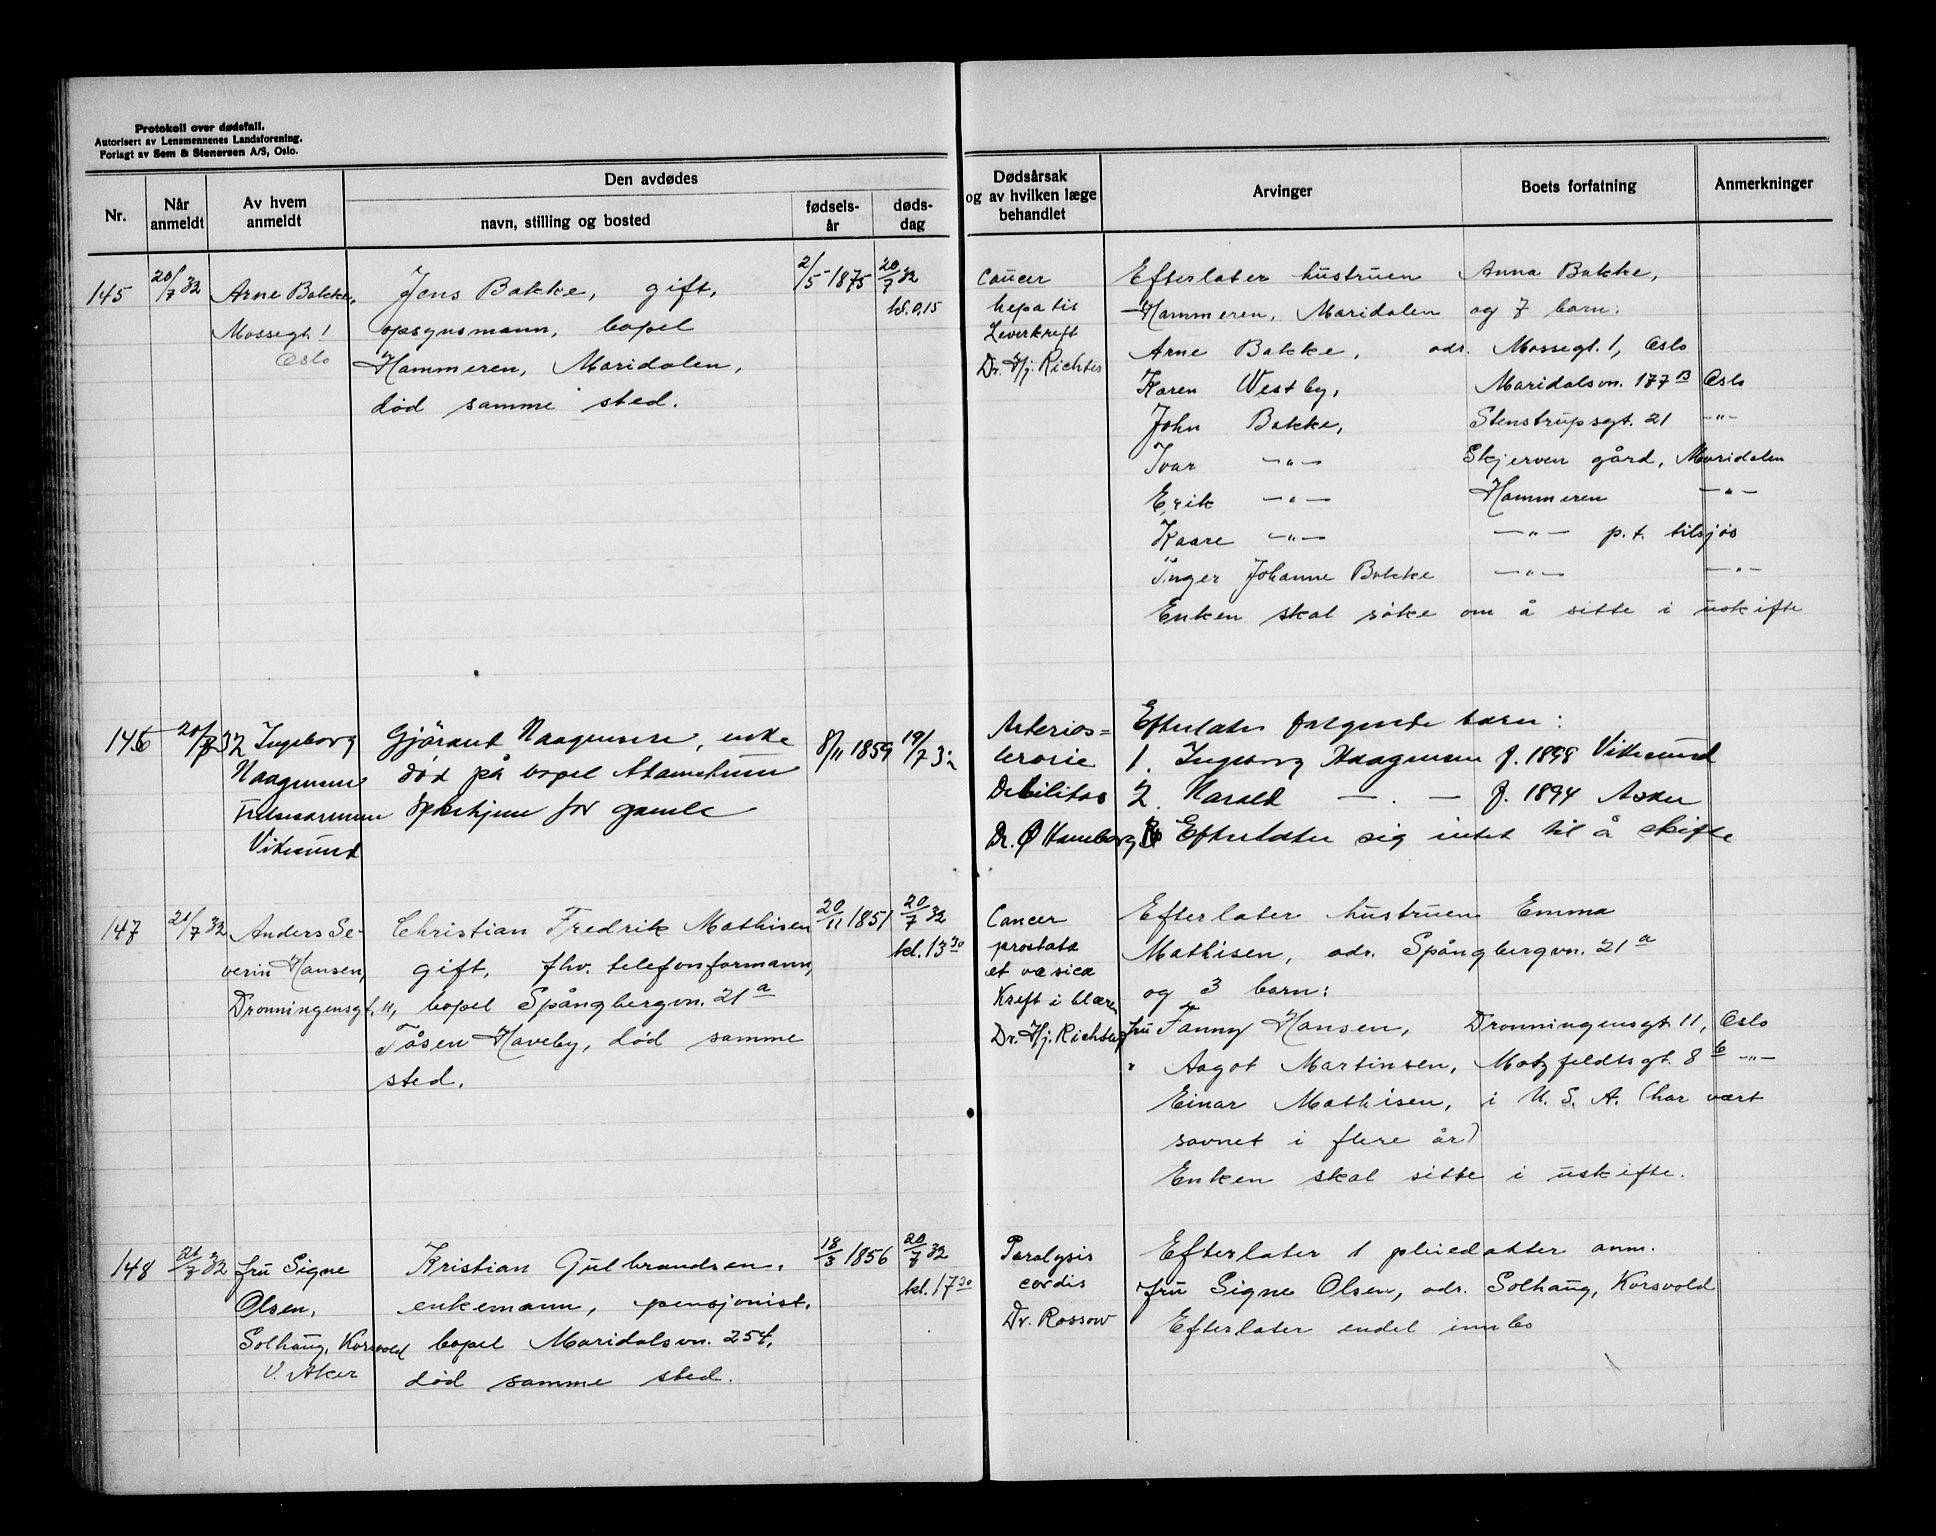 Protokoll over dødsfall.
Autorisert av Lensmennenes Landsforening.
Forlagt av Sem & Stenersen A/S, Oslo.
Nr.
Når anmeldt
Av hvem anmeldt
Den avdødes
navn, stilling og bosted
fødsels-år
døds-dag
Dødsårsak og av hvilken læge behandlet
Arvinger
Boets forfatning
Anmerkninger
145
20/7 32
Arne Bakke,
Mossegt. 1
Oslo
Jens Bakke, gift,
opsynsmann, bopel
Hammeren, Maridalen,
død samme sted.
2/5 1875
20/7 32
kl. 0,15
Cancer
hepatis
Leverkreft
Dr. Hj. Richter
Efterlater hustruen Anna Bakke,
Hammeren, Maridalen og 7 barn:
Arne Bakke, adr. Mossegt. 1, Oslo
Karen Westby, Maridalsvn. 177 B Oslo
John Bakke, Stenstrupsgt. 21 -"-
Ivar -"- Skjerven gård, Maridalen
Erik -"- Hammeren -"-
Kaare -"- -"- p.t. tilsjøs
Inger Johanne Bakke -"- -"-
Enken skal søke om å sitte i uskifte
146
20/7 32
Ingeborg
Haagensen
Vikesund
Gjörand Haagensen, enke
død på bopel
for gamle
8/11 1859
19/7 32
Arterios=
lerosie
Debilitas
Dr. Ø Hamborg
Efterlater følgende barn:
1. Ingeborg Haagensen f. 1898 Vikesund
2. Harald - . - f. 1894 Asker
Efterlater sig intet til å skifte
147
21/7 32
Anders Se-
verin Hansen,
Dronningensgt. 11,
Christian Fredrik Mathisen
gift, fhv. telefonformann,
bopel Spångbergvn. 21 a
Tåsen Haveby, død samme
sted.
20/11 1851
20/7 32
kl. 13 30
Cancer
prostata
et vesica
Kreft i blæren
Dr. Hj. Richter
Efterlater hustruen Emma
Mathisen, adr. Spångbergvn. 21 a
og 3 barn:
fru Fanny Hansen, Dronningensgt. 11, Oslo
" Aagot Martinsen, Motzfeldtsgt. 8 b -"-
Einar Mathisen, i U.S.A. (har vært
savnet i flere år)
Enken skal sitte i uskifte.
148
21/7 32
fru Signe
Olsen,
Solhaug, Korsvold
V. Aker
Kristian Gulbrandsen,
enkemann, pensjonist,
bopel Maridalsvn. 254,
død samme sted.
18/3 1856
20/7 32
kl. 17 30
Paralysis
cordis
Dr. Rossow
Efterlater 1 pleiedatter anm.
fru Signe Olsen, adr. Solhaug, Korsvold
Efterlater endel innbo